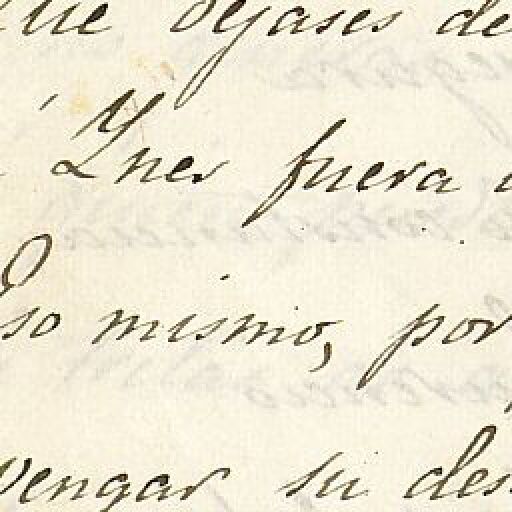 que dejases de
Ynes fuera
Eso mismo, por
vengar su des